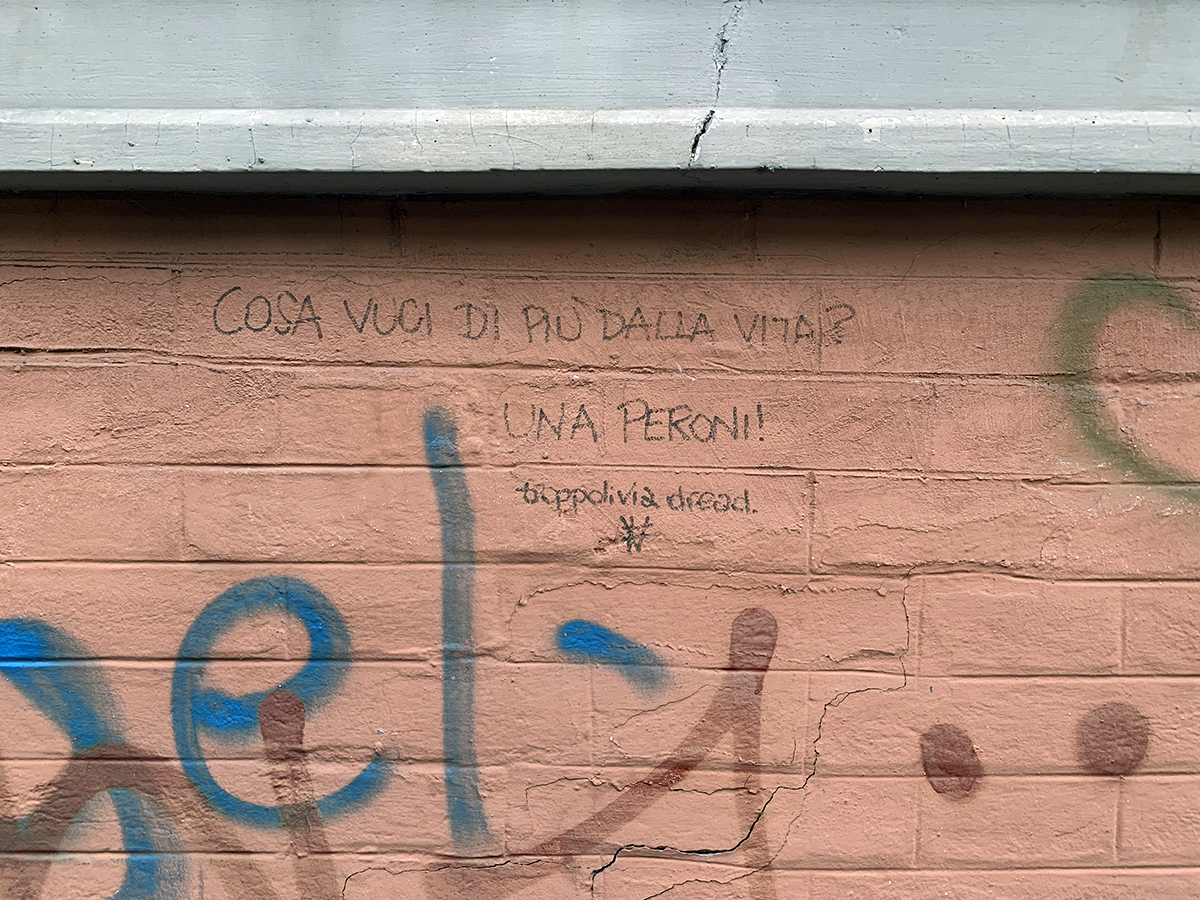 COSA VUOI DI PIÙ DALLA VITA?
UNA PERONI!
troppolivia dread.